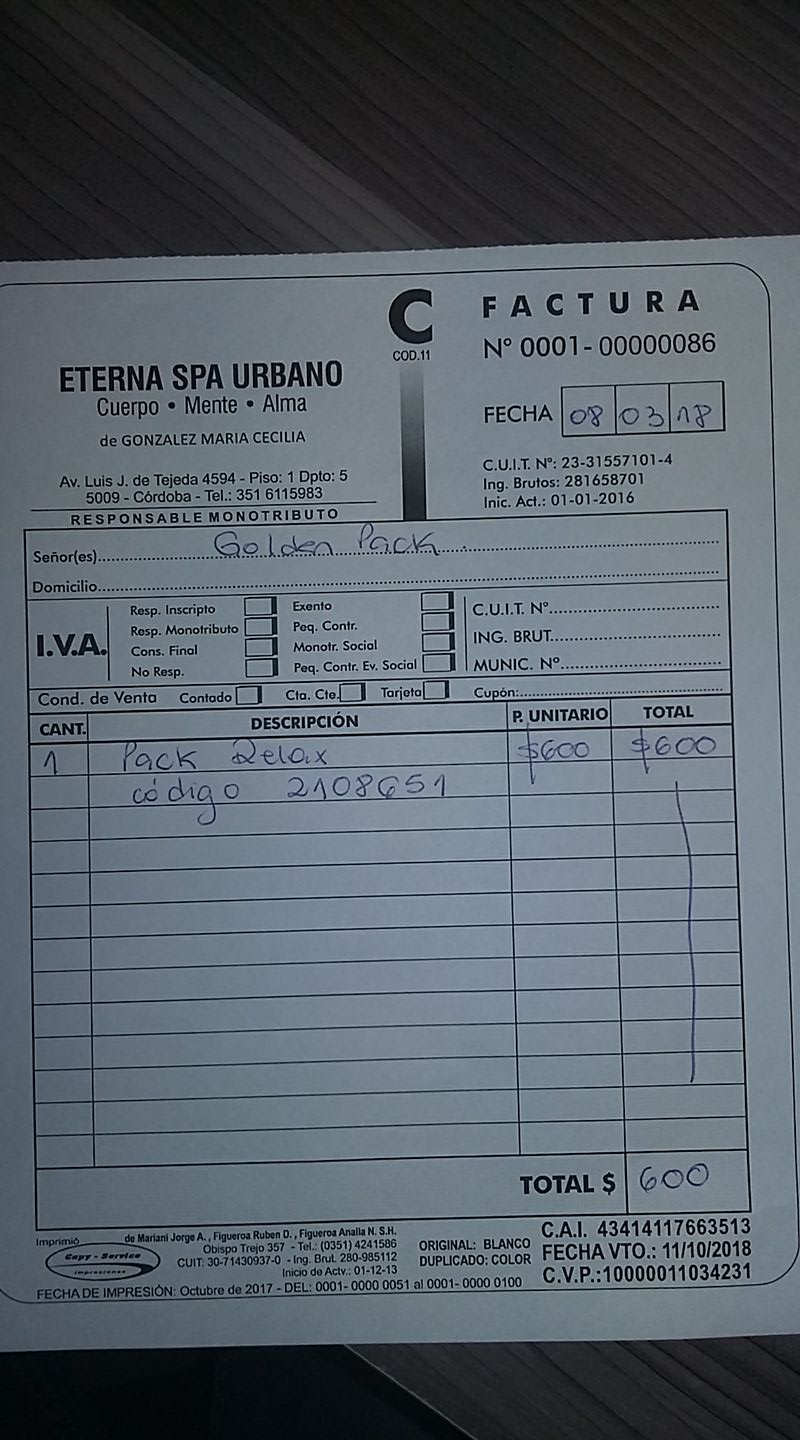 C
COD.11
FACTURA
Nº 0001-00000086
ETERNA SPA URBANO
Cuerpo • Mente • Alma
de GONZALEZ MARIA CECILIA
FECHA 08 03 18
Av. Luis J. de Tejeda 4594 - Piso: 1 Dpto: 5
5009 - Córdoba - Tel.: 351 6115983
RESPONSABLE MONOTRIBUTO
C.U.I.T. Nº: 23-31557101-4
Ing. Brutos: 281658701
Inic. Act.: 01-01-2016
Señor(es) Golden Pack
Domicilio
I.V.A.
Resp. Inscripto
Resp. Monotributo
Cons. Final
No Resp.
Exento
Peq. Contr.
Monotr. Social
Peq. Contr. Ev. Social
C.U.I.T. Nº
ING. BRUT.
MUNIC. Nº
Cond. de Venta Contado Cta. Cte. Tarjeta Cupón:
CANT. DESCRIPCIÓN P. UNITARIO TOTAL
1 Pack Relax $600 $600
código 2108651
TOTAL $ 600
Imprimió
Copy - Service
impresiones
de Mariani Jorge A., Figueroa Ruben D., Figueroa Analia N. S.H.
Obispo Trejo 357 - Tel.: (0351) 4241586
CUIT: 30-71430937-0 - Ing. Brut. 280-985112
Inicio de Actv.: 01-12-13
ORIGINAL: BLANCO
DUPLICADO: COLOR
C.A.I. 43414117663513
FECHA VTO.: 11/10/2018
C.V.P.:10000011034231
FECHA DE IMPRESIÓN: Octubre de 2017 - DEL: 0001- 0000 0051 al 0001- 0000 0100